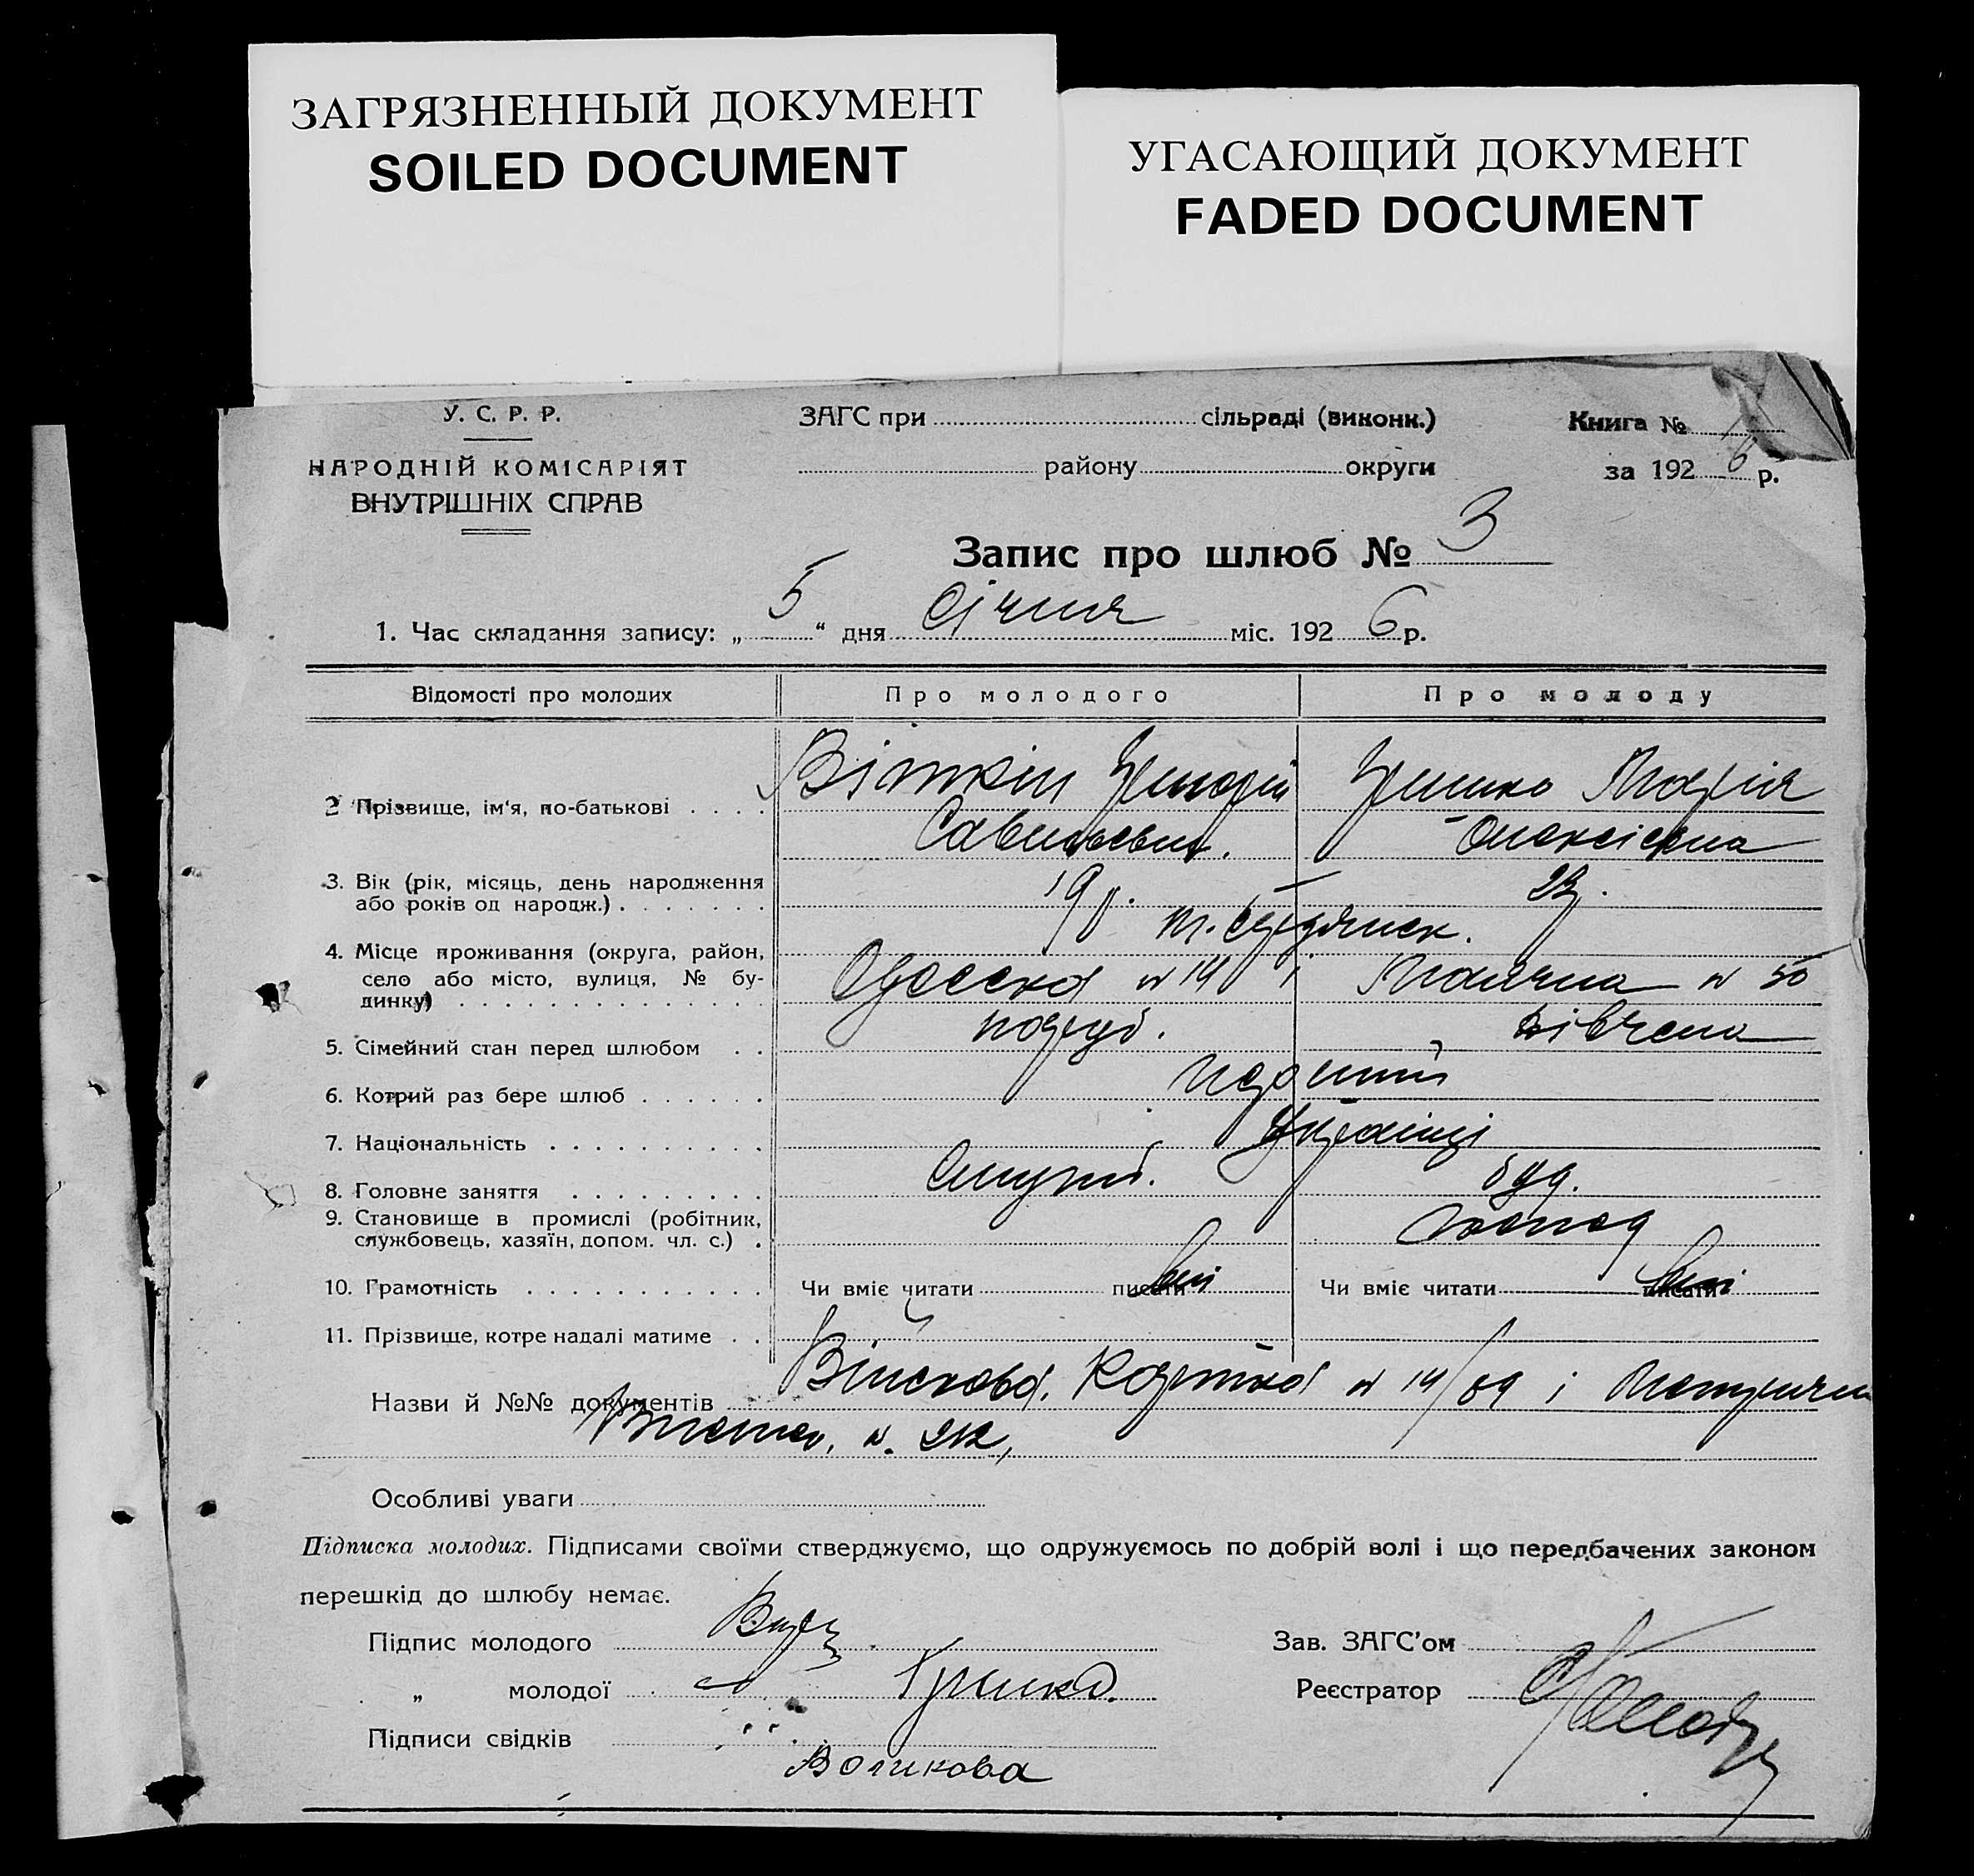 ЗАГРЯЗНЕННЫЙ ДОКУМЕНТ
SOILED DOCUMENT
УГАСАЮЩИЙ ДОКУМЕНТ
FADED DOCUMENT
У. С. Р. Р.
НАРОДНІЙ КОМІСАРІЯТ
ВНУТРІШНІХ СПРАВ
ЗАГС при сільраді (виконк.)
району округи
Книга №
за 192 6 р.
Запис про шлюб № 3
1. Час складання запису: „ 5 “ дня Січня міс. 192 6 р.
Відомості про молодих Про молодого Про молоду
2 Прізвище, ім'я, по-батькові Віткін Григорій Гришко Марія
Савельевич. Олексіевна
3. Вік (рік, місяць, день народження
або років од народж.) 19 р. 23
4. Місце проживання (округа, район,
село або місто, вулиця, № бу-
динку) Одесска № 14 і № 50
5. Сімейний стан перед шлюбом поруб. дівчена
6. Котрий раз бере шлюб
7. Національність Українці
8. Головне заняття Служб.
9. Становище в промислі (робітник,
службовець, хазяїн, допом. чл. с.)
10. Грамотність Чи вміє читати писати Чи вміє читати писати
11. Прізвище, котре надалі матиме
Назви й №№ документів Військова. Картка № 14/89 і
№. 212,
Особливі уваги
Підписка молодих. Підписами своїми стверджуємо, що одружуємось по добрій волі і що передбачених законом
перешкід до шлюбу немає.
Підпис молодого
Зав. ЗАГС'ом
„ молодої Гришко.
Реєстратор
Підписи свідків
Воликова